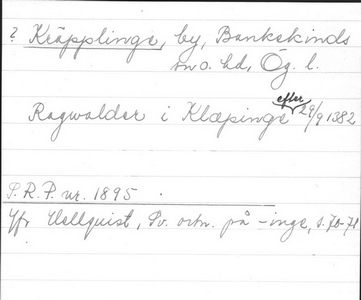 ? Kräpplinge, by, Bankekinds
sn o. hd, Ög. l.
Ragwalder i Klæpinge efter 29/9 1382
S.R.P. nr. 1895.
Jfr Hellquist, Sv. ortn. på -inge, s. 70-71